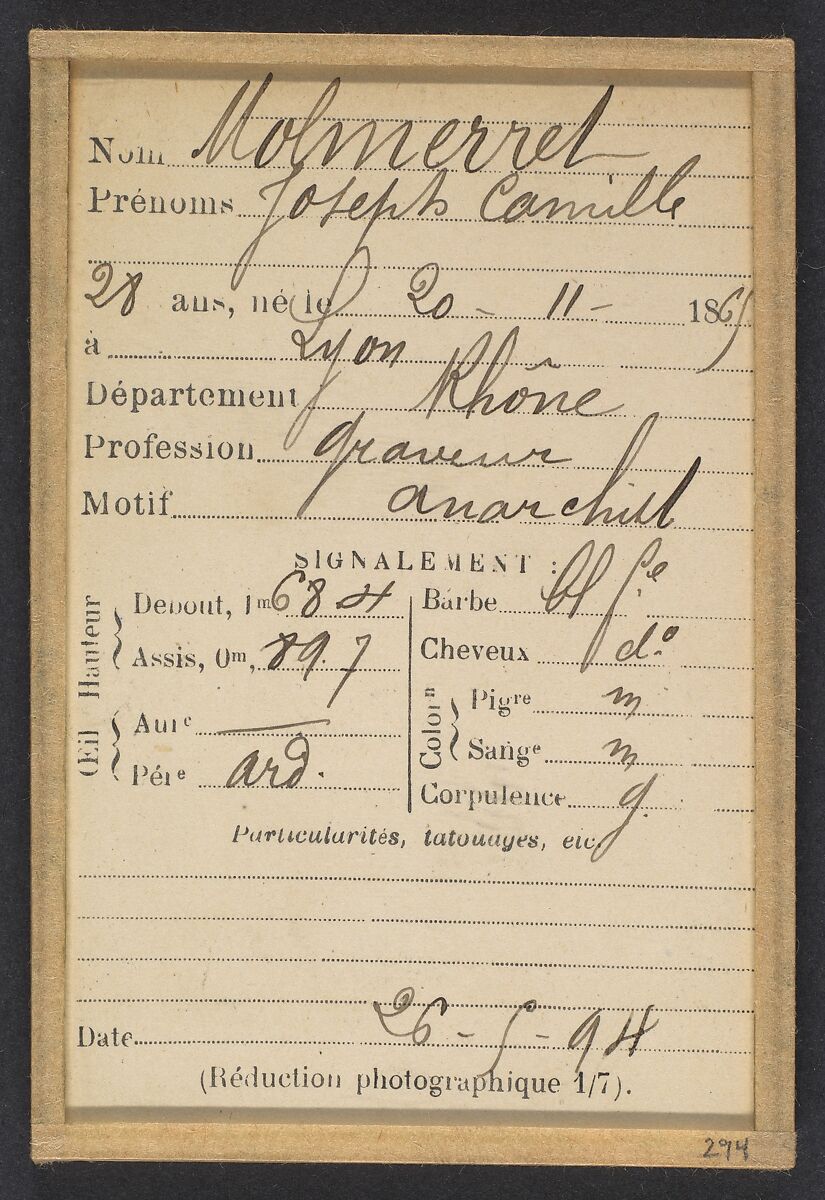 Nom Molmerret
Prénoms Joseph Camille
28 ans, né le 20 - 11 - 1865
à Lyon
Département Rhône
Profession graveur
Motif anarchist
SIGNALEMENT :
Hauteur
Debout, 1m 68 4
Assis, 0m, 89.7
Œil
Aure —
Périe ard.
Barbe bl f.e
Cheveux do
Colorn
Pigre m
Sange m
Corpulence g.
Particularités, tatouages, etc.
Date 26 - 5 - 94
(Réduction photographique 1/7).
294